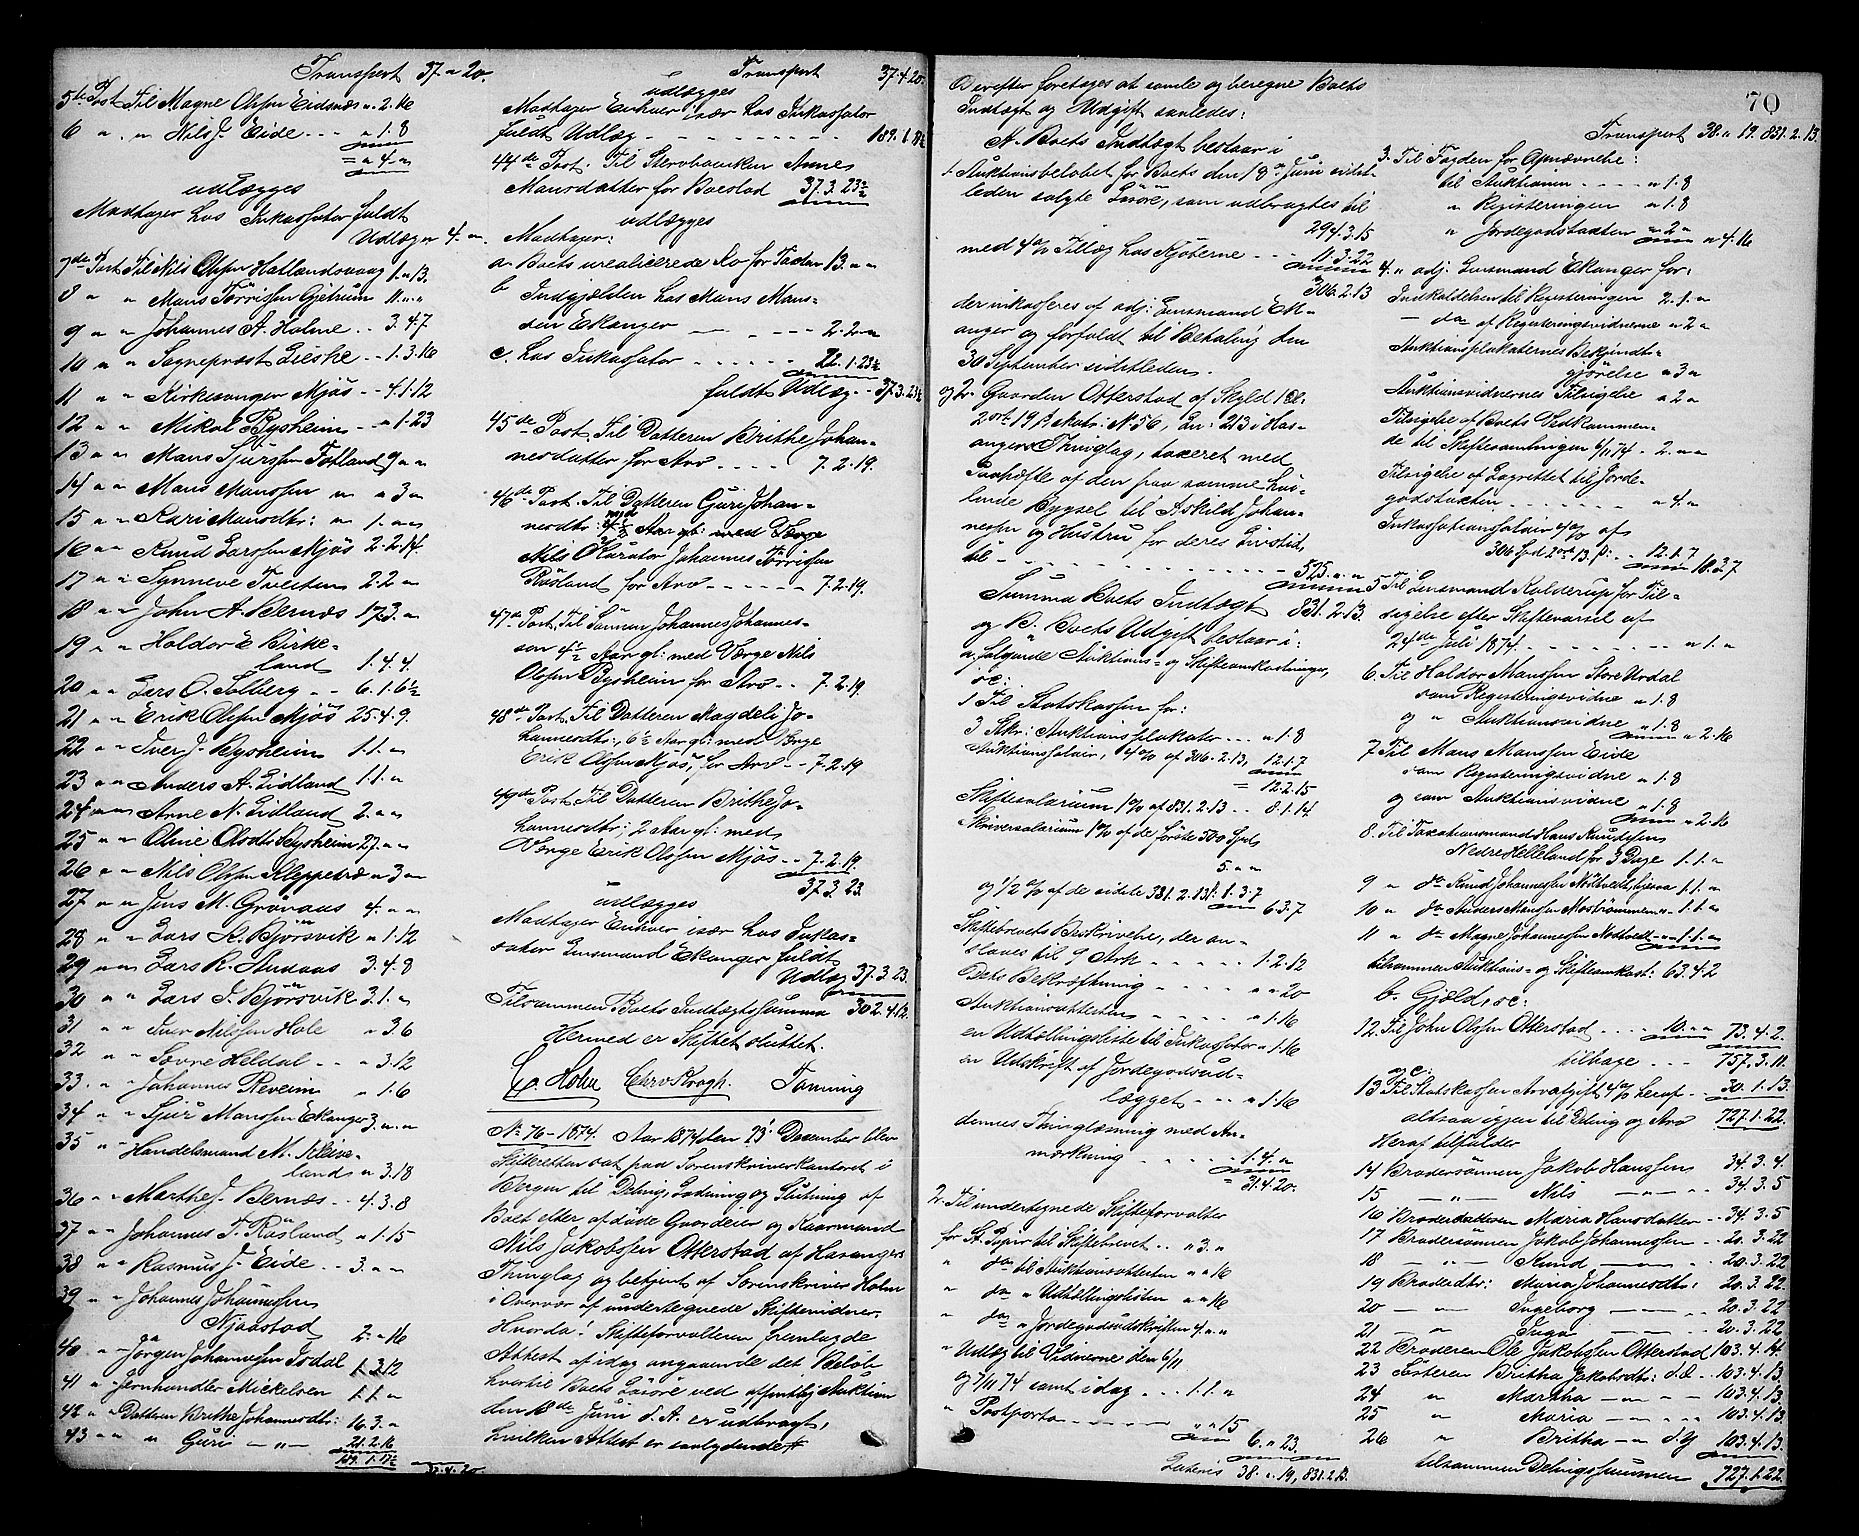 Transport 37 " 20.
5te Post Til Magne Olsen Eidsnæs " 2.16
6 " " Nils J. Eide - - - " 1.8
= " 4 "
udlægges
Modtager hos Inkassator fuldt
Udlæg " 4. "
7de Post Til Nils Olsen Hatlandsvaag 1. " 13.
8 " " Mans Tørrissen Gjetrum 11. " "
9 " " Johannes A. Holme - - 3.4.7
10 " " Sogneprest Lieske - - 1.3.16
11 " " Kirkesanger Mjøs - - 4.1.12
12 " " Mikal Bysheim - - " 1.23
13 " " Mans Sjursen Totland 9 " "
14 " " Mans Mansen " " 3 "
15 " " Kari Mansdtr: " 1. " "
16 " " Knud Larssen Mjøs 2.2.14.
17 " " Synneve Tveiten 2.2 "
18 " " John A. Bernæs 17.3. "
19 " " Haldor E Birke-
land 1.4.4.
20 " " Lars O. Solberg - - 6.1.6½
21 " " Erik Olsen Mjøs 25.4.9.
22 " " Iver J. Bysheim 1.1. "
23 " " Anders A. Eidland 1.1. "
24 " " Anne N. Eitland 2. " "
25 " " Oline Olsdtr Bysheim 27. " "
26 " " Nils Olsen Kleppestø " 3 "
27 " " Jens M. Grøvaas 4. " "
28 " " Lars K. Bjørsvik " 1.12
29 " " Lars R. Andaas 3.4.8
30 " " Lars I. Bjørsvik 3.1. "
31 " " Iver Nilssen Hole " 3.6
32 " " Sevre Heldal - - " 3.12
33. " " Johannes Reveim " 1.6
34 " " Sjur Mansen Ekanger 3. " "
35 " " Handelsmand M. Kleive-
land " 3.18
36 " " Marthe J. Bernæs - - 4.3.8
37 " " Johannes T. Røsland " 1.15
38 " " Rasmus J. Eide - - 3. " "
39 " " Johannes Johannessen
Njaastad 2. " 16
40 " " Jørgen Johannessen Isdal 1.3.12
41 " " Jernhandler Mickelsen 1.1. "
42 " " Datteren Brithe Johannesdtr: 16.3. "
43 " " " Guri - " - 21.2.16
189.1.11½
37.4.20
Transport 37.4.20.
udlægges
Modtager Enhver især hos Inkassator
fuldt Udlæg - - - - - - - - - 189.1.11½
44de Post. Til Stervboenken Anne
Mansdatter for Boeslod 37.3.23½
udlægges
Modtager:
a. Boets urealiserede Ko for Taxten 13. " "
b Indgjælden hos Mans Mans-
sen Ekanger - - - - - 2.2 "
c. hos Inkassator - - - - - 22.1.23½
fuldt Udlæg - - 37.3.23½
45de Post. Til Datteren Brithe Johan-
nesdatter for Arv - - - - 7.2.19.
46de Post. Til Datteren Guri Johan-
nesdtr:
Nils Curator Johannes Tørrisen
Røsland for Arv - - - - - 7.2.19.
47de Post. Til Sønnen Johannes Johannes-
sen 4½ Aar gl: med Værge Nils
Olsen Bysheim for Arv - - 7.2.19.
48de Post. Til Datteren Magdeli Jo-
hannesdtr:, 6½ Aar gl: med Værge
Erik Olsen Mjøs, for Arv - - 7.2.19
49de Post. Til Datteren Brithe Jo-
hannesdtr:, 2 Aar gl: med
Værge Erik Olsen Mjøs - - 7.2.19.
37.3.23.
udlægges
Modtager Enhver især hos Inkas-
sator Lensmand Ekanger fuldt
Udlæg 37.3.23.
Tilsammen Boets Indtægtssumma 302.4.12.
Hermed er Skiftet sluttet.
Holm Chr v Krogh. Tonning
No 76 - 1874. Aar 1874 den 23' December blev
Skifteretten sat paa Sorenskriverkontoret i
Bergen til Deling, Lodning og Slutning af
Boet efter afdøde Gaardeier og Kaarmand
Nils Jakobsen Otterstad af Hasanger
Thinglag og betjent af Sorenskriver Holm
i Overvær af undertegnede Skiftevidner.
Hvorda! Skifteforvalteren fremlagde
Attest af idag angaaende det Beløb
hvortil Boets Løsøre ved offentlig Auktion
den 18de Juni d. A. er udbragt,
hvilken Attest er saalydende #
70
Derefter foretoges at samle og beregne Boets
Indtægt og Udgift saaledes:
A. Boets Indtægt bestaar i
1. Auktionsbeløbet for Boets den 18de Juni sidst-
leden solgte Løsøre, som udbragtes til
294.3.15
med 4% Tillæg hos Kjøberne - - - 11.3.22
306.2.13
der inkasseres af adj: Lensmand Ek-
anger og forfaldt til Betaling den
30 September sidstleden.
og 2. Gaarden Otterstad af Skyld 1 Dl.
2 ort 19 β Matr: N 56, Løn: 213 i Has-
angers Thinglag, taxeret med
Paahæfte af den paa samme hvi-
lende Bygsel til Askild Johan-
nessen og Hustru for deres Livstid,
til - - - - - - - - - - 525. " "
Summa Boets Indtægt 831.2.13.
og B. Boets Udgift bestaar i:
a. følgende Auktions- og Skifteomkostninger,
sc:
1 Til Statskassen for:
3 Skr: Auktionsplakater - - - " 1.8
Auktionssalair, 4% af 306.2.13, 12.1.7
= 12.2.15
Skiftesalarium 1% af 831.2.13 - - 8.1.14.
Skriversalarium 1% af de første 500 Spd,
5. " "
og 1/2 % af de sidste 331.2.13β. 1.3.7
6.3.7
Skiftebrevets Beskrivelse, der an-
slaaes til 9 Ark - - - - - 1.2.12
Dets Bekræftning - - - - " " 20
Auktionsattesten - - - - " 1.16
en Udhølingsliste til Inkassator " 1.16
en Udskrift af Jordegodsud-
lægget - - - " 1.16
dennes Thinglæsning med An-
mærkning - - - - - 1.4. "
31.4.20.
2. Til undertegnede Skifteforvalter
for St. Papir til Skiftebrevet - - " 3. "
" do til Auktionsattesten " " 16
" do " Udhølingslisten " " 16
" do " Jordegodsudskriften 4. " "
" Udlæg til Vidnerne den 6/11
og 7/11 74 samt idag - - - 1.1. "
" Postporto - - - - - " " 15
6. " 23.
Lateris 38. " 19, 831.2.13.
Transport 38. " 19. 831.2.13.
3. Til Fogden for Opnævnelse:
til Auktionen - - - - " 1.8
" Registeringen " 1.8
" Jordegodstaxten " 2 " " 4.16
4. " adj: Lensmand Ekanger for:
Indkaldelsen til Registeringen 2.1. "
- do af Registeringsvidnerne " 2 "
Auktionsplakaternes Bekjendt-
gjørelse " 3 "
Auktionsvidnernes Tilsigelse " 2 "
Tilsigelse af Boets Vedkommen-
de til Skiftesamlingen 6/11 74 - 2. " "
Tilsigelse af Lagrettet til Jorde-
godstaxten - - - - - - - " 4. "
Inkassationssalair 4% af
306 Spd 2 ort 13 β: - - 12.1.7 18.3.7
5 Til Lensmand Kalderup for Til-
sigelse efter Skiftevarsel af
24de Juli 1874 - - - - - - - - " 1. "
6. Til Haldor Mansen Store Urdal
som Registeringsvidne " 1.8
og " Auktionsvidne " 1.8 " 2.16
7 Til Mans Mansen Eide
som Registeringsvidne " 1.8
og som Auktionsvidne " 1.8 " 2.16
8. Til Taxationsmand Hans Knudsen
Nedre Helleland for 3 Dage 1.1. "
9 " do Knud Johannesen Nøttvedt, ligesaa 1.1. "
10 " do Anders Mansen Mostrømmen " - 1.1. "
11 " do Magne Johannesen Nøttvedt - " 1.1. "
tilsammen Auktions- og Skifteomkost: 63.4.2
b. Gjæld, sc:
12. Til John Olsen Otterstad - - - - 10. " " 73.4.2.
tilbage - - - 757.3.11.
og c.
13 Til Statskassen Arveafgift 4% heraf - - 30.1.13.
altsaa igjen til Deling og Arv 727.1.22.
Heraf tilfalder
14 Brodersønnen Jakob Hanssen 34.3.4.
15 - " - Nils - " - 34.3.5
16 Broderdatteren Maria Hansdatter - - 34.3.5
17 Brodersønnen Jakob Johannessen - - 20.3.22
18 " Knud - " - 20.3.22
19 Broderdtr: Maria Johannesdtr: 20.3.22.
20 - " - Ingeborg - " - 20.3.22
21 - " - Inga - " - 20.3.22
22 Broderen Ole Jakobsen Otterstad 103.4.14
23 Søsteren Britha Jakobsdtr: d. Æ - - 103.4.13.
24 " Martha - " - 103.4.13.
25 " Maria - " - 103.4.13.
26 " Britha - " d. Y 103.4.13.
tilsammen Delingssummen 727.1.22.